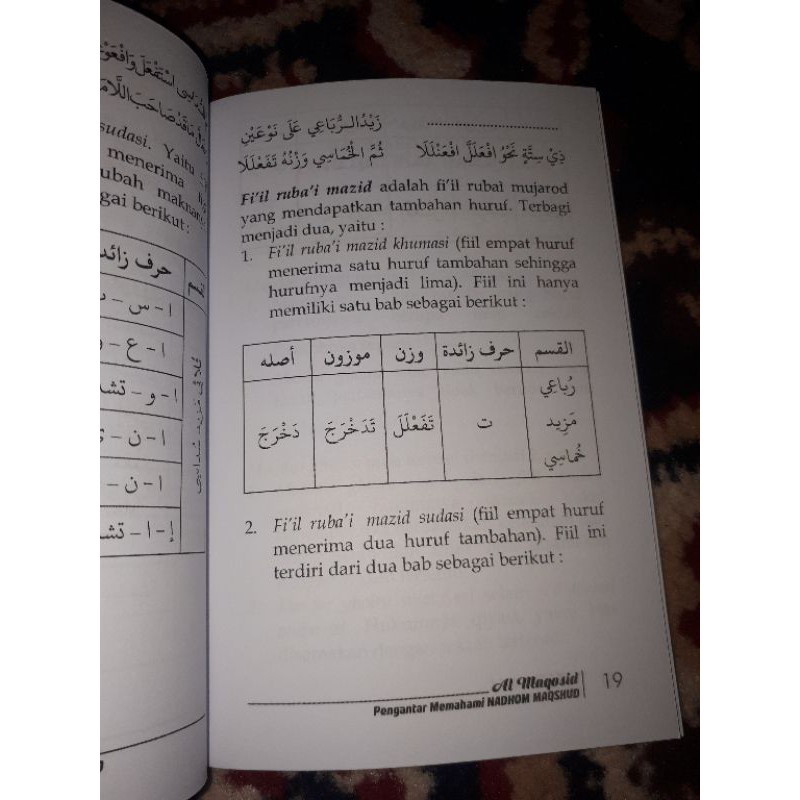 sudasi. Yaitu
menerima
ubah makna
gai berikut :
القسم حرف زائد
ا - س -
ا - ع -
ا - و - تشد
ا - ن -
ا - ن -
إ - ا - تشد
............................... زَيْدُ الرُّبَاعِي عَلَى نَوْعَيْنِ
ذِيْ سِتَّةٍ نَحْوُ افْعَلَلَّ افْعَنْلَلَا ثُمَّ الْخُمَاسِي وَزْنُهُ تَفَعْلَلَا
Fi'il ruba'i mazid adalah fi'il rubai mujarod
yang mendapatkan tambahan huruf. Terbagi
menjadi dua, yaitu :
1. Fi'il ruba'i mazid khumasi (fiil empat huruf
menerima satu huruf tambahan sehingga
hurufnya menjadi lima). Fiil ini hanya
memiliki satu bab sebagai berikut :
القسم حرف زائدة وزن موزون أصله
رُبَاعِي
مَزِيد ت تَفَعْلَلَ تَدَخْرَجَ دَخْرَجَ
خُمَاسِي
2. Fi'il ruba'i mazid sudasi (fiil empat huruf
menerima dua huruf tambahan). Fiil ini
terdiri dari dua bab sebagai berikut :
Al Maqosid
Pengantar Memahami NADHOM MAQSHUD
19